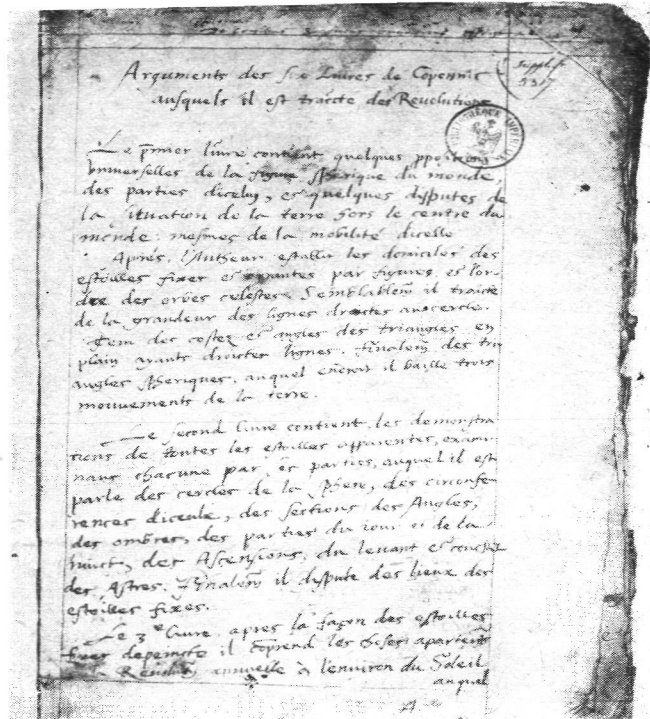 Arguments des six Livres de Copernic
ausquels il est traicte des Revolutions
suppl. fr.
5317
BIBLIOTHEQUE
Le p̄mier livre contient quelques ppositions
universelles de la figure spherique du monde,
des parties diceluy, et quelques disputes de
la situation de la terre hors le centre du
monde: mesmes de la mobilité dicelle
Aprés, l'Autheur establit les domiciles des
estoilles fixes et errantes par figures, et l'or-
dre des orbes celestes. Semblablem̄ il traicte
de la grandeur des lignes droictes au cercle.
Item des costez et angles des triangles en
plain ayants droictes lignes. Finalem̄ des tri
angles spheriques. auquel encor il baille trois
mouvements de la terre.
Le second livre contient, les demonstra
tions de toutes les estoilles apparentes, exami
nans chacune par, parties, auquel il est
parle des cercles de la sphere, des circonfe
rences diceulx, des sections des Angles,
des ombres, des parties du iour et de la
nuict, des Ascensions, du levant et couchant
des Astres. Finalem̄ il dispute des lieux des
estoilles fixes.
Le 3e livre, apres la façon des estoilles
fixes depeincte il cōprend les choses
Revolut annuelle à l'environ du Soleil
auquel
A.